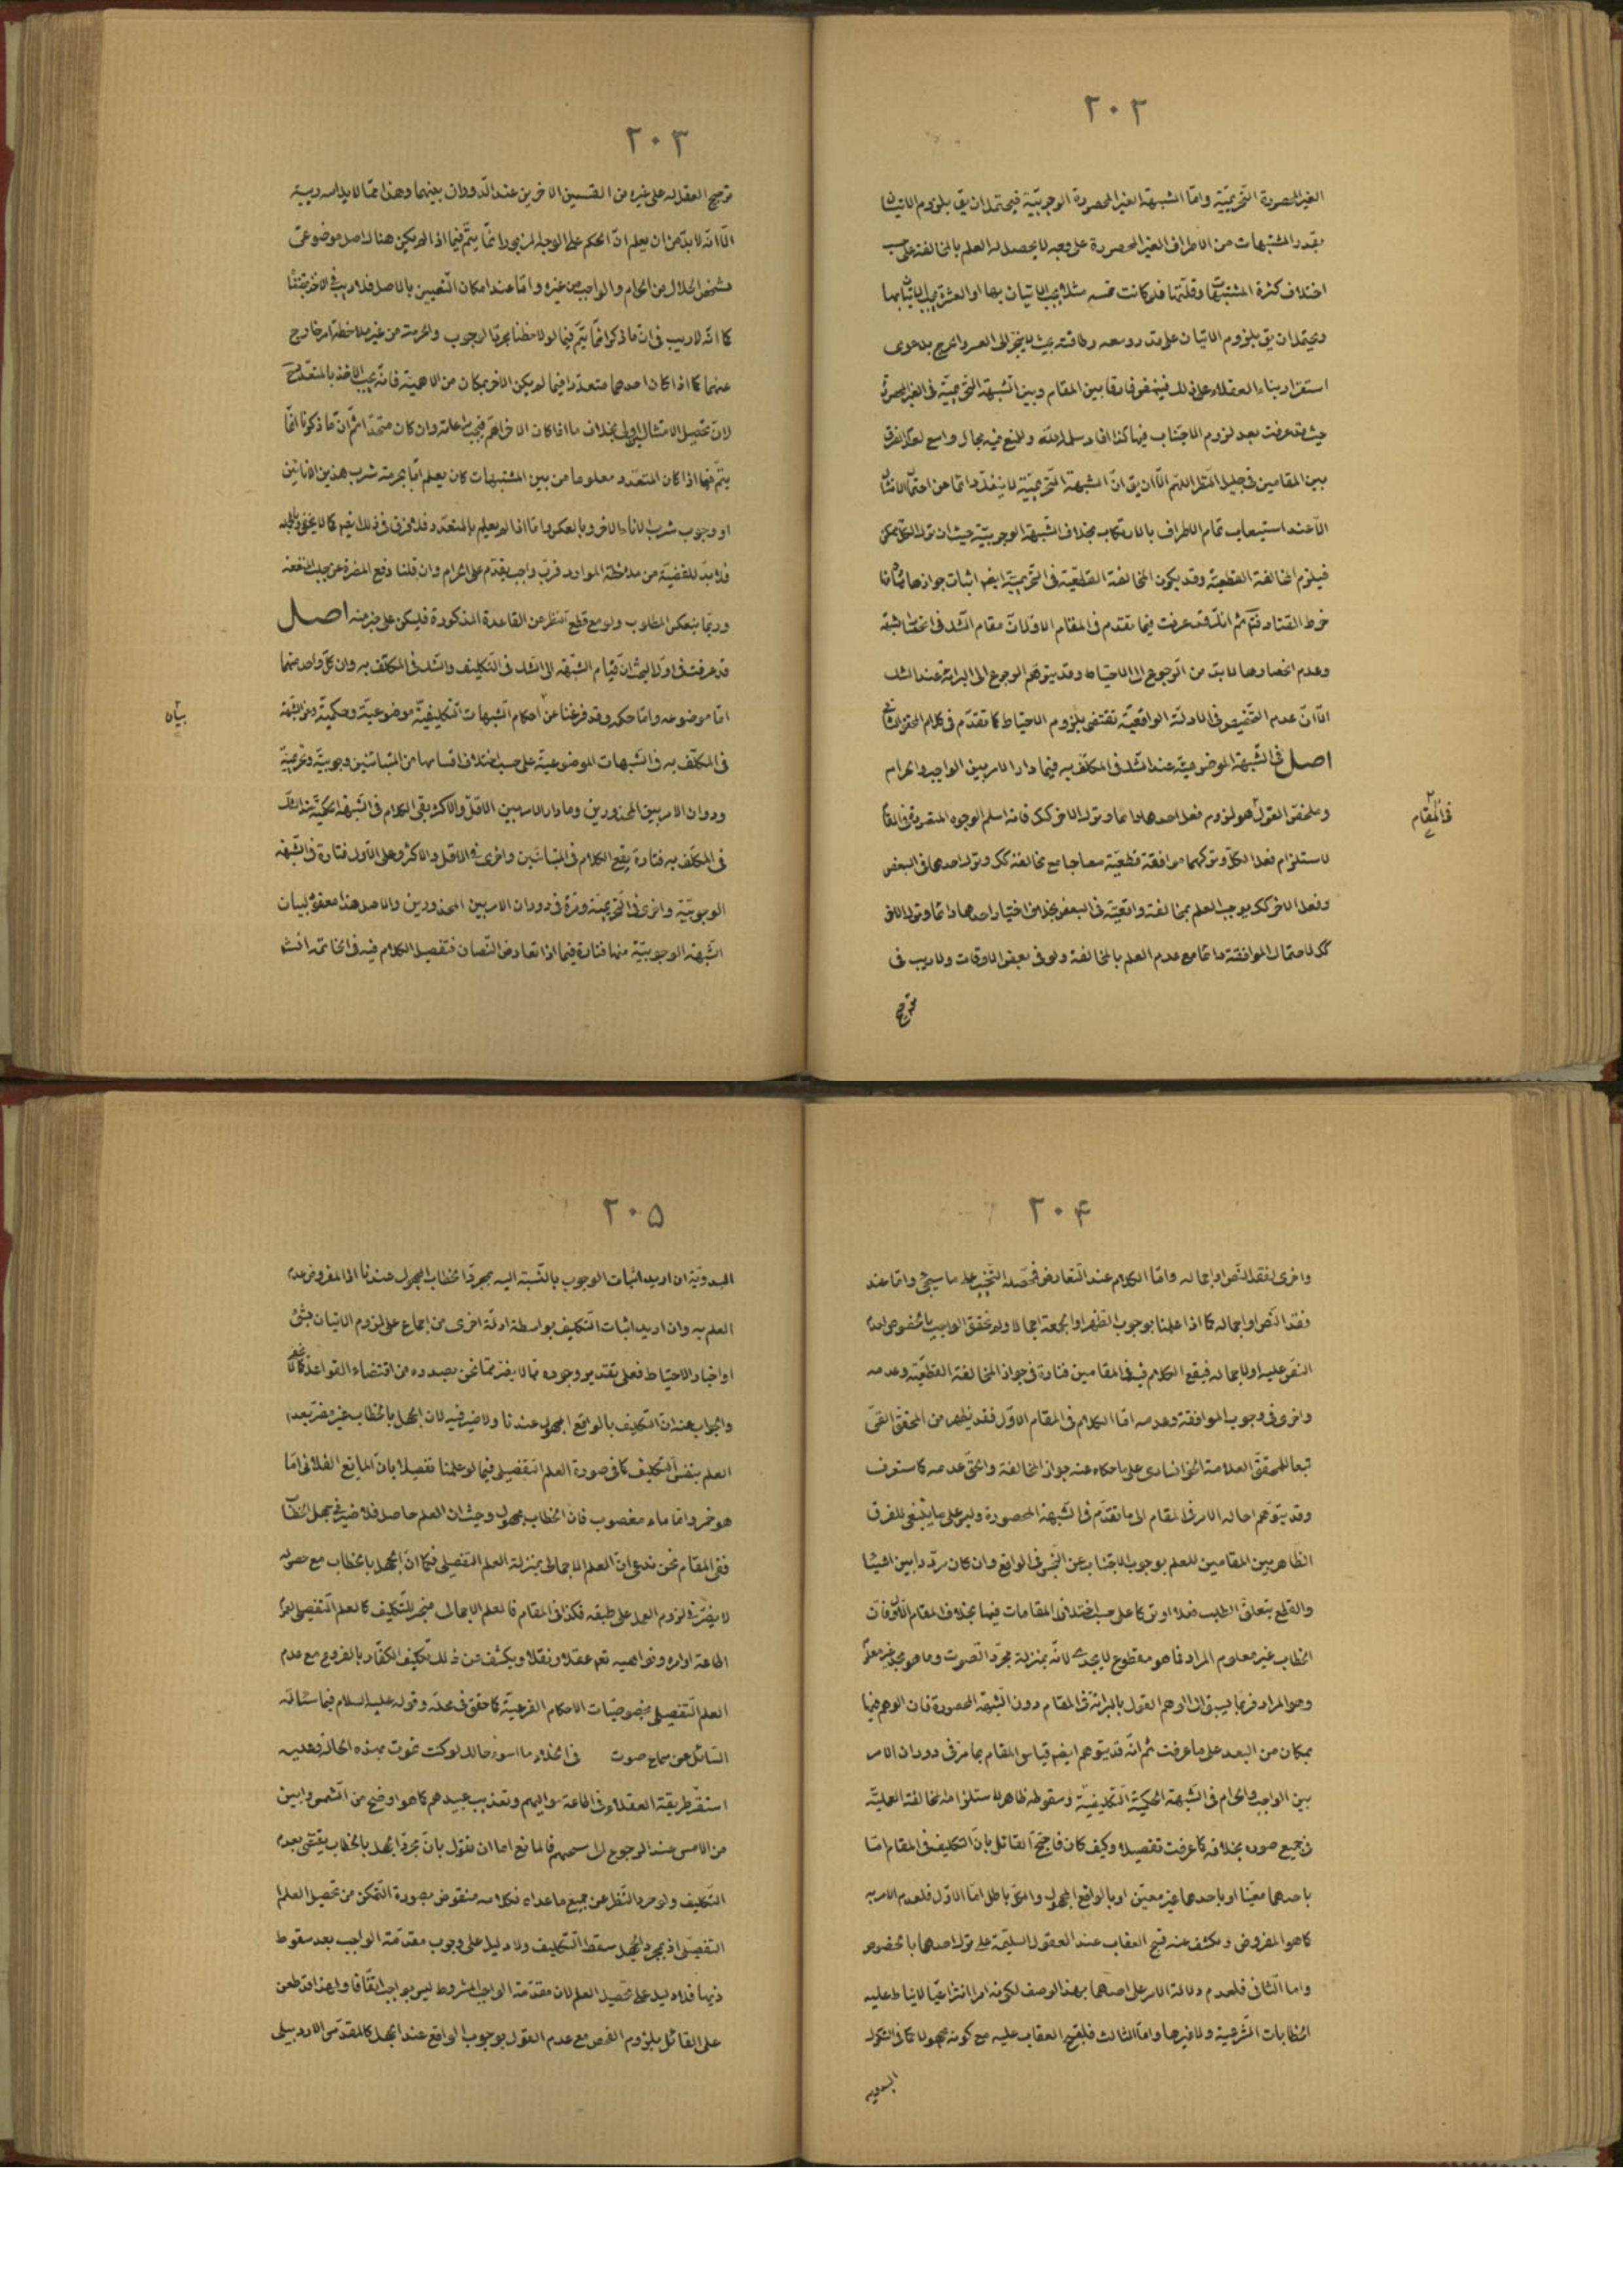 ٢٠٢
الغير المحصورة التحريميّة وامّا الشبهة الغير المحصورة الوجوبيّة فيحتمل ان يق بلزوم الاتيان
بقدر المشتبهات من الاطراف الغير المحصورة على وجه لا يحصل له العلم بالمخالفة على حسب
اختلاف كثرة المشتبهات وقلّتها فلو كانت خمسه مثلا يجب الاتيان بها او العشرة يجب الاتيان بها
ويحتمل ان يق بلزوم الاتيان على قدر وسعه وطاقته بحيث لا ينجرّ الى العسر والحرج بدعوى
استقرار بناء العقلاء على ذلك فينهض فارقا بين المقام وبين الشبهة التحريميّة فى الغير المحصورة
حيث قد عرفت بعدم لزوم الاجتناب فيها كذا افاد سلمه الله وللمنع فيه مجال واسع لعدم الفرق
بين المقامين فى جليل النظر اللهم الّا ان يق انّ الشبهة التحريميّة لا ينفكّ دائما عن احتمال الامتثال
الّا عند استيعاب تمام الاطراف بالارتكاب بخلاف الشبهة الوجوبيّة حيث ان ترك الكل ممكن
فيلزم المخالفة القطعيّة وقد يكون المخالفة القطعيّة فى التحريميّة ايضا اثبات جوازها
خرط القتاد فتم ثم انك قد عرفت فيما تقدم فى المقام الاوّل انّ مقام الشك فى انحصار الشبهة
وعدم انحصارها لا بدّ من الرجوع الى الاحتياط وقد يتوهّم الرجوع الى البرائة عند الشك
الّا انّ عدم التخصيص فى الادلّة الواقعيّة تقتضى بلزوم الاحتياط كما تقدّم فى كلام المحقق الثانى
اصل فى الشبهة الموضوعيّة عند الشك فى المكلّف به فيما دار الامر بين الواجب والحرام
وملخص القول هو لزوم فعل احدهما دائما وترك الاخر كك فانه اسلم الوجوه المتصورة فى المقام
لاستلزام فعل الكلّ وتركهما موافقة قطعيّة معا جامع مخالفة كك وترك احدهما فى البعض
وفعل الاخر كك يوجب العلم بمخالفة واقعيّة فى البعض بخلاف اختيار احدهما دائما وترك الاخر
كك لاحتمال الموافقة دائما مع عدم العلم بالمخالفة ولو فى بعض الاوقات ولا ريب فى
ترجيح
فى المقام
٢٠٣
ترجيح العقل له على غيره من القسمين الاخرين عند الدّوران بينهما وهذا ممّا لا يدانيه ريبة
الّا انّه لا بدّ من ان يعلم انّ الحكم على الوجه المزبور انّما يتمّ فيما اذا لم يكن هناك اصل موضوعىّ
مشخص الحلال من الحرام والواجب من غيره وامّا عند امكان التعيين بالاصل فلا ريب فى الاخذ بمقتضاه
كما انّه لا ريب فى انّ ما ذكر انّما يتمّ فيما لو لاحظنا مجرّد الوجوب والحرمة من غير ملاحظة امر خارج
عنهما كما اذا كان احدهما متعدّدا فيما لم يكن الاخر بمكان من الاهميّة فانّه يجب الاخذ بالمتعدّد
لانّ تحصيل الامتثال اولى بخلاف ما اذا كان الاخر اهمّ فيجب مراعاته وان كان متحدا ثمّ انّ ما ذكرنا انّما
يتمّ فيما اذا كان المتعدّد معلوما من بين المشتبهات كان يعلم امّا بحرمة شرب هذين الانائين
او وجوب شرب الاناء الاخر وبالعكس وامّا اذا لم يعلم بالمتعدّد فلا فرق فى ذلك ايضا كما لا يخفى وبالجملة
فلا بدّ للقضيّة من ملاحظة الموارد فربّ واجب يقدّم على الحرام وان قلنا دفع المضرة عن جلب المنفعة
وربّما ينعكس المطلوب ولو مع قطع النظر عن القاعدة المذكورة فليكن على خبر منه اصل
قد عرفت فى اوّل البحث انّ قيام الشبهة الى الشك فى التكليف والشك فى المكلّف به وان كلّ واحد منهما
امّا موضوعه وامّا حكمه وقد فرغنا عن احكام الشبهات التكليفيّة موضوعيّة وحكمية وعن الشبهة
فى المكلّف به فى الشبهات الموضوعيّة على حسب اختلاف اقسامها من المتباينين وجوبيّة وتحريميّة
ودوران الامر بين المحذورين وما دار الامر بين الاقلّ والاكثر بقى الكلام فى الشبهة الحكميّة عند الشك
فى المكلّف به فتارة يقع الكلام فى المتباينين واخرى فى الاقل والاكثر وعلى الاوّل فتارة فى الشبهة
الوجوبيّة واخرى فى التحريميّة ومرّة فى دوران الامر بين المحذورين والاصل هذا معقود لبيان
الشبهة الوجوبيّة منها فتارة فيما اذا تعارض النصّان فتفصيل الكلام فيه فى الخاتمة انش
بيان
٢٠۴
واخرى لفقد النّص او اجماله وامّا الكلام عند التعارض فمحصّله التخيير على ما سيجئ وامّا عند
فقد النص او اجماله كما اذا علمنا بوجوب الظهر او الجمعة اجمالا ولم نحقق الواجب بالخصوص لعدم
النص عليه او لاجماله فيقع الكلام فيه فى المقامين فتارة فى جواز المخالفة القطعيّة وعدمه
واخرى فى وجوب الموافقة وعدمه امّا الكلام فى المقام الاوّل فقد يظهر من المحقق القمّى
تبعا للمحقق العلامة الخوانسارى على ما حكاه عنه جواز المخالفة والحق عدمه كما ستعرف
وقد يتوهّم احالة الامر فى المقام الى ما تقدّم فى الشبهة المحصورة وليس على ما ينبغى للفرق
الظاهر بين المقامين للعلم بوجوب الاجتناب عن النجس فى الواقع وان كان مردّدا بين اشياء
والقطع بتعلق الطلب فعلا او تركا على حسب اختلاف المقامات فيها بخلاف المقام
الخطاب غير معلوم المراد فما هو مقطوع لا يجدى لانّه بمنزلة مجرّد الصّوت وما هو مجد غير معلوم
وهو المراد فربّما يسبق الى الوهم القول بالبرائة فى المقام دون الشبهة المحصورة فان الوهم فيها
بمكان من البعد على ما عرفت ثم انّه قد يتوهم ايضا قياس المقام بما مرّ فى دوران الامر
بين الواجب والحرام فى الشبهة الحكميّة التكليفيّة وسقوطه ظاهر لاستلزامه المخالفة العمليّة
فى جميع صوره بخلافه كما عرفت تفصيلا وكيف كان فاحتجّ القائل بانّ التكليف فى المقام امّا
باحدهما معيّنا او باحدهما غير معيّن او بالواقع المجهول والكل باطل امّا الاوّل فلعدم الامر به
كما هو المفروض ويكشف عنه قبح العقاب عند العقول السليمة على ترك احدهما بالخصوص
واما الثانى فلعدم دلالة الامر على احدهما بهذا الوصف لكونه امرا انتزاعيّا لا يناط عليه
الخطابات الشرعيّة ولا غيرها وامّا الثالث فلقبح العقاب عليه مع كونه مجهولا كما فى الشكوك
البدويه
٢٠۵
البدويّة ان اريد اثبات الوجوب بالنسبة اليه بمجرّد الخطاب المجهول عندنا اذ المفروض عدم
العلم به وان اريد اثبات التكليف بواسطة ادلّة اخرى من اجماع على لزوم الاتيان بشئ
او اخبار الاحتياط فعلى تقدير وجوده ممّا لا يضرّ بما نحن بصدده من اقتضاء القواعد كما لا يخفى
والجواب عنه انّ التكليف بالواقع المجهول عندنا ولا ضير فيه لان الجهل بالخطاب غير مضرّ بعدم
العلم بنفس التكليف كما فى صورة العلم التفصيلى فيما لو علمنا تفصيلا بانّ المايع الفلانى امّا
هو خمر وامّا ماء مغصوب فانّ الخطاب مجهول وحيث ان العلم حاصل فلا ضير فى جهل الخطاب
ففى المقام نحن ندعى انّ العلم الاجمالى بمنزلة العلم التفصيلى فكما انّ الجهل بالخطاب مع حصوله
لا يضرّ فى لزوم العمل على طبقه فكذا فى المقام فالعلم الاجمالى منجز للتكليف كالعلم التفصيلى لعدم
اطاعة اوامره ونواهيه نعم عقلا ونقلا ويكشف عن ذلك تكليف الكفّار بالفروع مع عدم
العلم التفصيلى بخصوصيّات الاحكام الفرعيّة كما حقق فى محله وقوله عليه السلام فيما سئله
السّائل عن سماع صوت فى الخلاء ما اسوء حالك لو كنت تموت بهذه الحالة وعليه
استقر طريقة العقلاء فى اطاعة مواليهم وتعذيب عبيدهم كما هو اوضح من الشمس وابين
من الامس عند الرجوع الى سجيّتهم فالمانع اما ان نقول بانّ مجرّد الجهل بالخطاب يقتضى بعدم
التكليف ولو جرد النظر عن جميع ما عداه فكلامه منقوض بصورة التمكن من تحصيل العلم
التفصيلى اذ بمجرد الجهل سقط التكليف ولا دليل على وجوب مقدّمة الواجب بعد سقوط
ذيها فلا دليل على تحصيل العلم لان مقدّمة الواجب المشروط ليس بواجب اتّفاقا ولهذا قد طعن
على القائل بلزوم الفحص مع عدم القول بوجوب الواقع عند الجهل كالمقدّس الاردبيلى